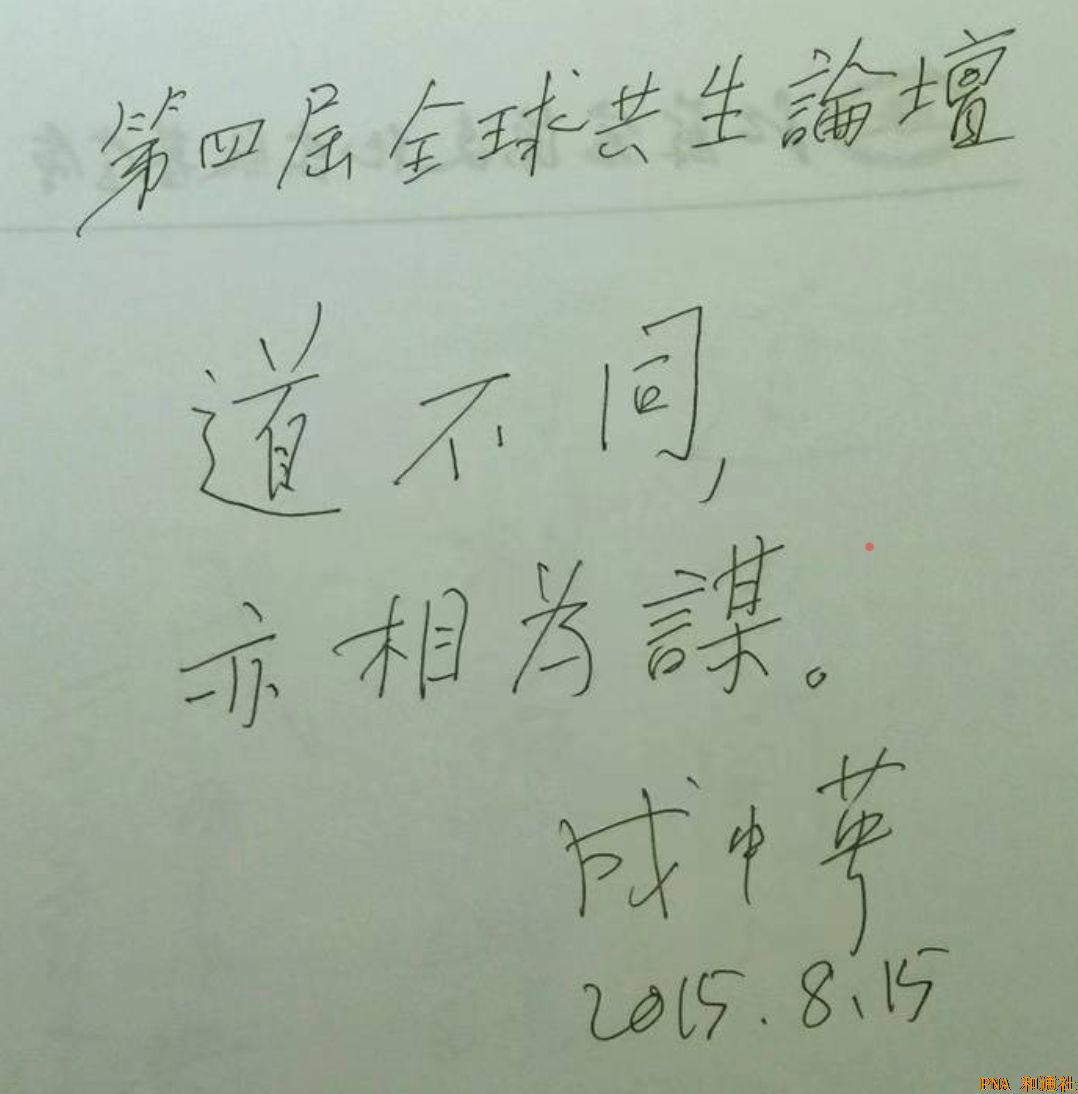 第四届全球共生論壇
道不同,
亦相为謀。
成中英
2015.8.15
PNA 和通社